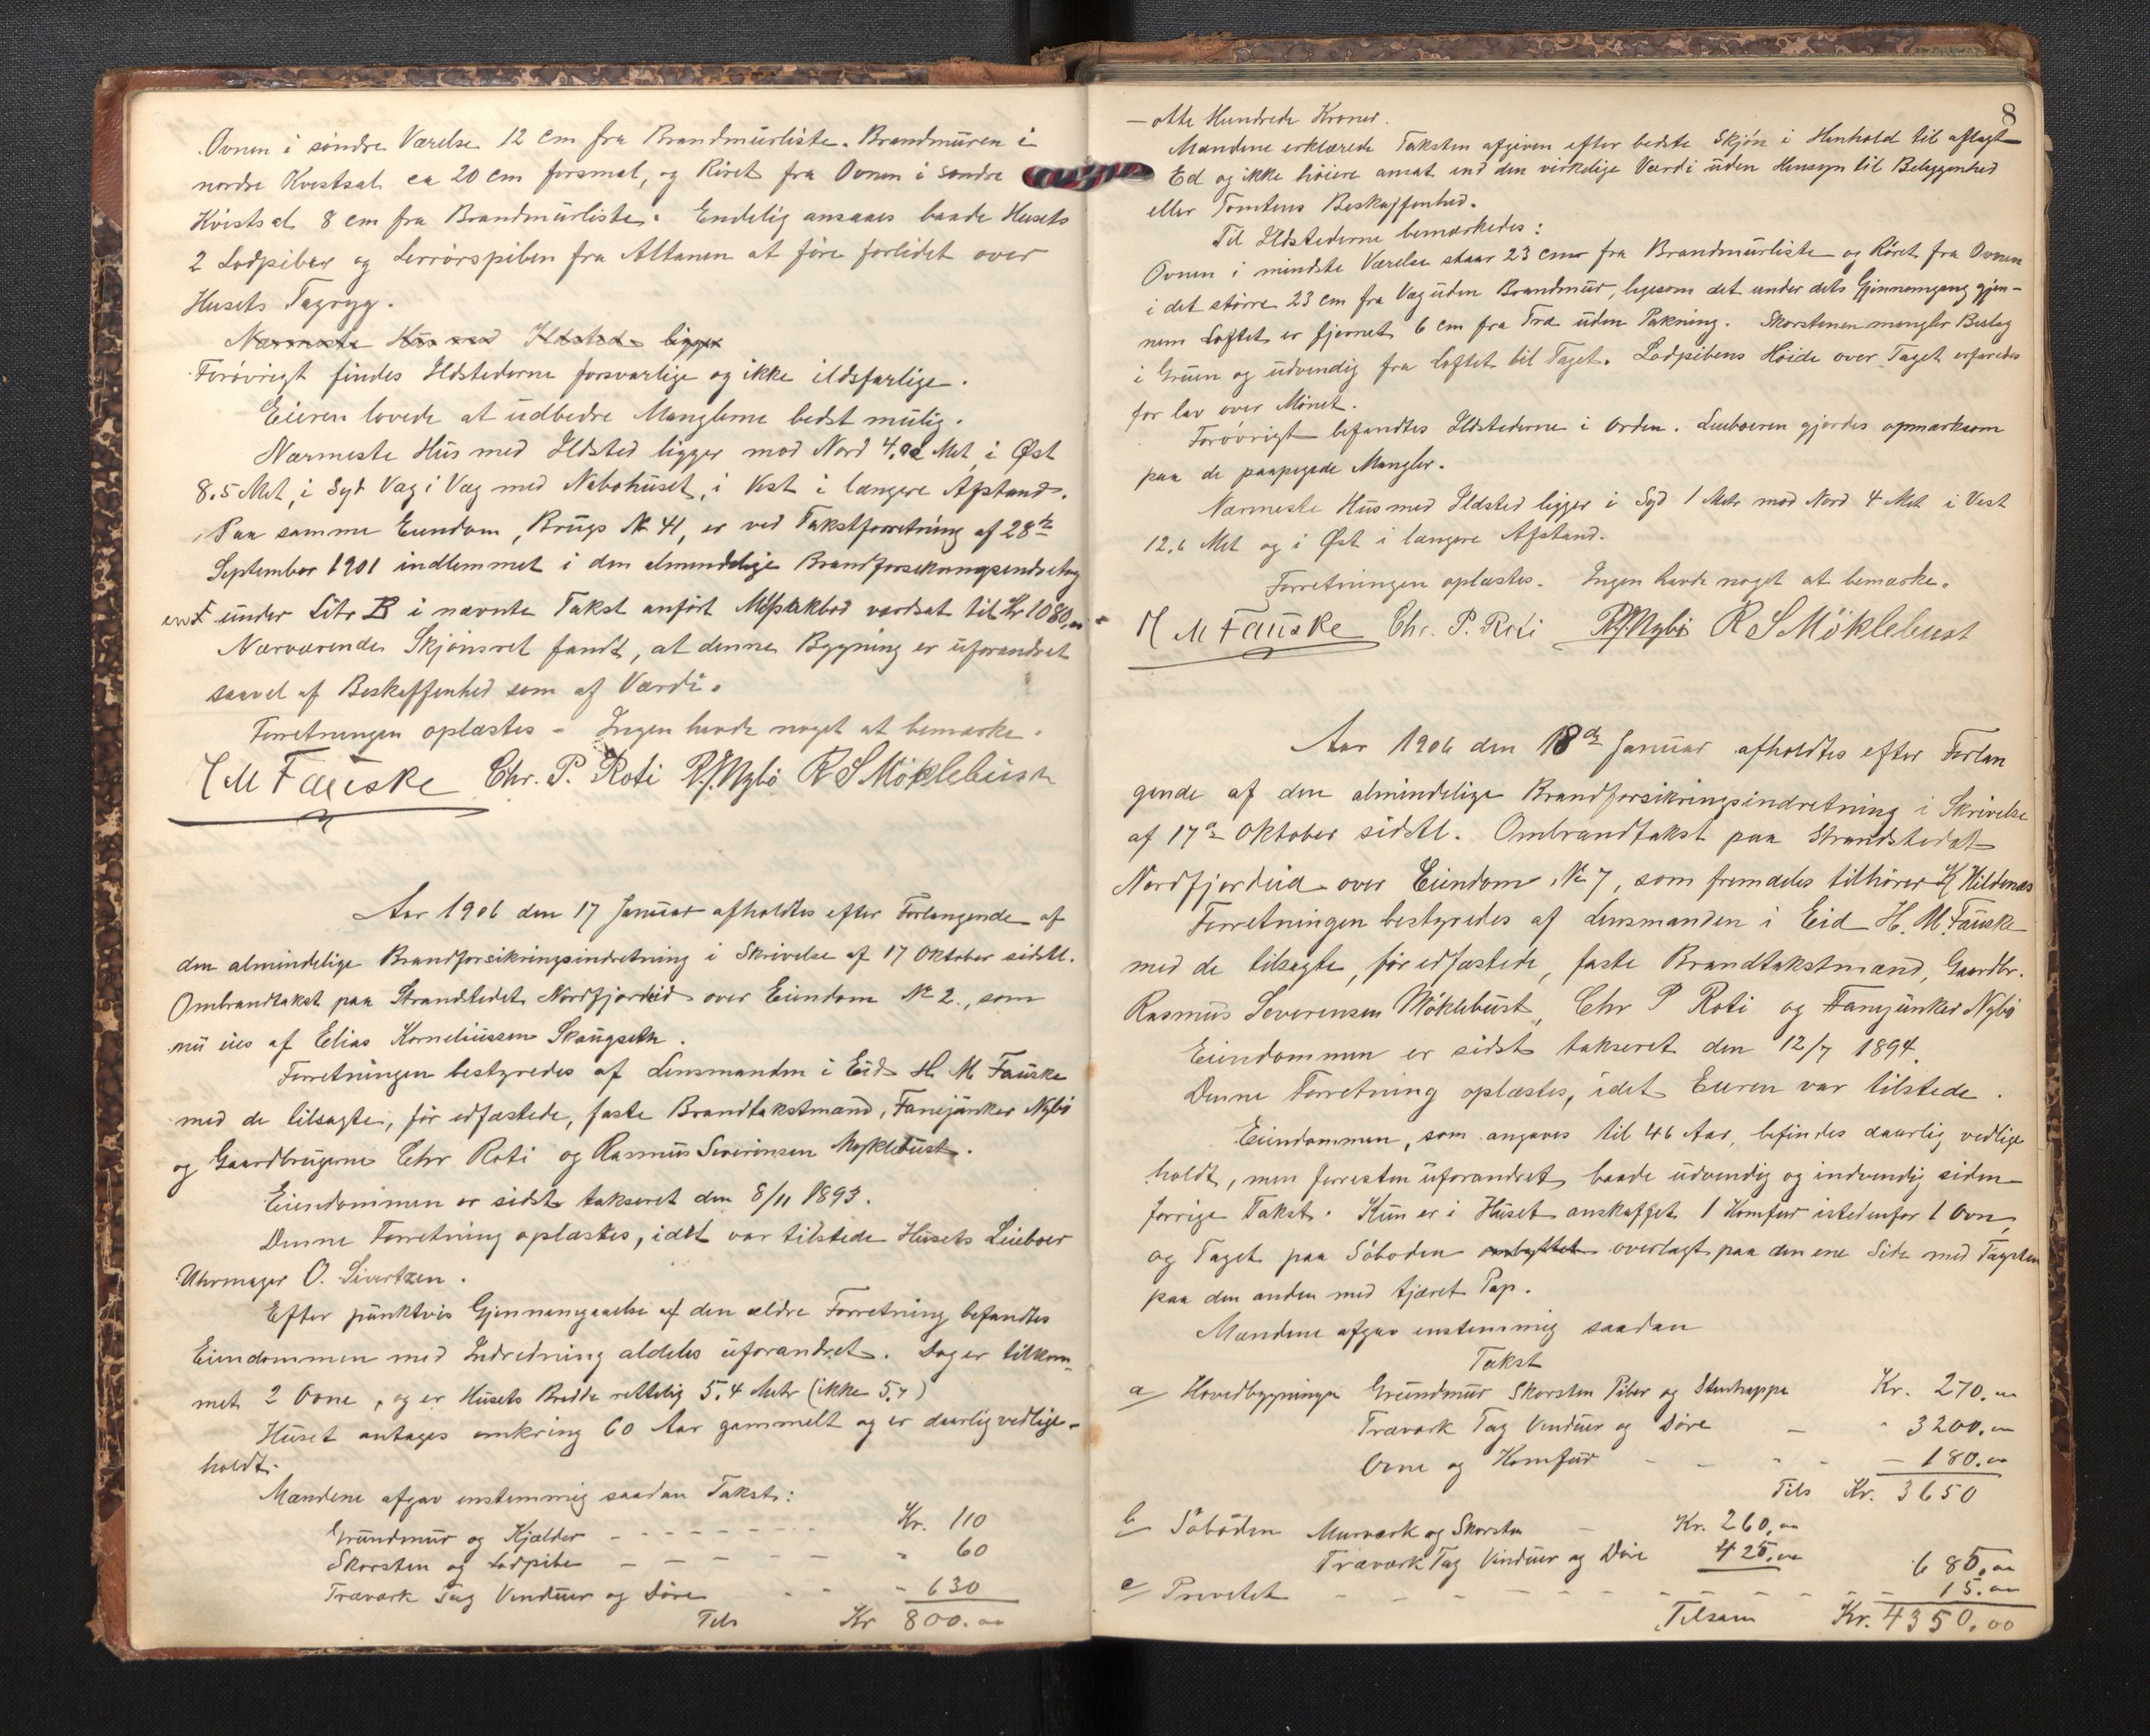 Ovnen i søndre Værelse 12 cm fra Brandmürliste. Brandmüren i
nordre Kvistsal ca 20 cm forsmal, og Röret fra Ovnen i søndre
Kvistsal 8 cm fra Brandmürliste. Endelig ansaaes baade Husets
2 Lodpiber og Lerrörspiben fra Altanen at före forlidet over
Husets Tagryg.
Nærmeste Hüs med Ildsted ligger
Forövrigt findes Ildstederne forsvarlige og ikke ildsfarlige.
Eieren lovede at üdbedre Manglerne bedst mülig.
Nærmeste Hüs med Ildsted ligger mod Nord 4. Met, i Øst
8.5 Met, i Syd Væg i Væg med Nabohüset, i Vest i længere Afstand.
Paa samme Eiendom, Brügs № 41, er ved Takstforretning af 28de
September 1901 indlemmet i den almindelige Brandforsikringsindretning
en under Litr B i nævnte Takst anfört værdsat til Kr 1080,00
Nærværende Skjönsret fandt, at denne Bygning er üforandret
saavel af Beskaffenhed som af Værdi.
Forretningen oplæstes - Ingen havde noget at bemærke.
H M Fauske Chr. P. Roti R.J. Nybö R S Möklebust
Aar 1906 den 17 Janüar afholdtes efter Forlangende af
den almindelige Brandforsikringsindretning i Skrivelse af 17 Oktober sidstl.
Ombrandtakst paa Strandstedet Nordfjordeid over Eiendom № 2., som
nü eies af Elias Korneliüssen Skaugseth.
Forretningen bestyredes af Lensmanden i Eid H. M. Faüske
med de tilsagte, för edfæstede, faste Brandtakstmænd, Fanejünker Nybö
og Gaardbrügerne Chr Roti og Rasmüs Severinsen Myklebüst.
Eiendommen er sidst takseret den 8/11 1893.
Denne Forretning oplæstes, idet var tilstede Hüsets Leieboer
Uhrmager O. Sivertzen.
Efter pünktvis Gjennemgaaelse af den ældre Forretning befandtes
Eiendommen med Indredning aldeles üforandret. Dog er tilkom-
met 2 Ovne, og er Hüsets Bredde rettelig 5.4 Metr (ikke 5.7)
Hüset antages omkring 60 Aar gammelt og er daarlig vedlige-
holdt.
Mændene afgav enstemmig saadan Takst:
Gründmür og Kjælder - - - Kr. 110
Skorsten og Lodpibe - - - " 60
Træværk Tag Vindüer og Döre - - - 630
Tils Kr 800.00
8
- otte Hundrede Kroner.
Mændene erklærede Taksten afgiven efter bedste Skjön i Henhold til aflagt
Ed og ikke höiere ansat end den virkelige Værdi üden Hensyn til Beliggenhed
eller Tomtens Beskaffenhed.
Til Ildstederne bemærkedes:
Ovnen i mindste Værelse staar 23 cm fra Brandmürliste og Röret fra Ovnen
i det större 23 cm fra Væg üden Brandmür, ligesom det under dets Gjennemgang gjen-
nem Loftet er fjernet 6 cm fra Træ üden Pakning. Skorstenen mangler Beslag
i Grüen og üdvendig fra Loftet til Taget. Lodpibens Höide over Taget erfaredes
for lav over Mönet.
Forövrigt befandtes Ildstederne i Orden. Leieboeren gjordes opmærksom
paa de paapegede Mangler.
Nærmeste Hüs med Ildsted ligger i Syd 1 Metr mod Nord 4 Met i Vest
12.6 Met og i Øst i længere Afstand.
Forretningen oplæstes. Ingen havde noget at bemærke.
H M Fauske Chr. P. Roti R.J. Nybö R S Möklebust
Aar 1906 den 18de Janüar afholdtes efter Forlan
gende af den almindelige Brandforsikringsindretning i Skrivelse
af 17de Oktober sidstl. Ombrandtakst paa Strandstedet
Nordfjordeid over Eiendom № 7, som fremdeles tilhörer K Hildenæs
Forretningen bestyredes af Lensmanden i Eid H. M. Faüske
med de tilsagte, för edfæstede, faste Brandtakstmænd, Gaardbr.
Rasmüs Severensen Möklebüst, Chr P Roti og Fanejünker Nybö
Eiendommen er sidst takseret den 12/7 1894.
Denne Forretning oplæstes, idet Eieren var tilstede.
Eiendommen, som angaves til 46 Aar, befindes daarlig vedlige
holdt, men forresten üforandret baade üdvendig og indvendig siden
forrige Takst. Kün er i Hüset anskaffet 1 Komfür istedenfor 1 Ovn,
og Taget paa Söboden ombyttet overlagt paa den ene Side med Tagsten
paa den anden med tjæret Pap.
Mændene afgav enstemmig saadan
Takst
a/ Hovedbygningen Gründmür Skorsten Piber og Stentrappe Kr. 270.00
Træværk Tag Vindüer og Döre - " 3200.00
Ovne og Komfür - - - 180.00
Tils Kr. 3650
b/ Söboden Mürværk og Skorsten - Kr. 260,00
Træværk Tag Vindüer og Döre 425,00 685,00
c/ Privetet - - - 15.00
Tilsam Kr. 4350,00